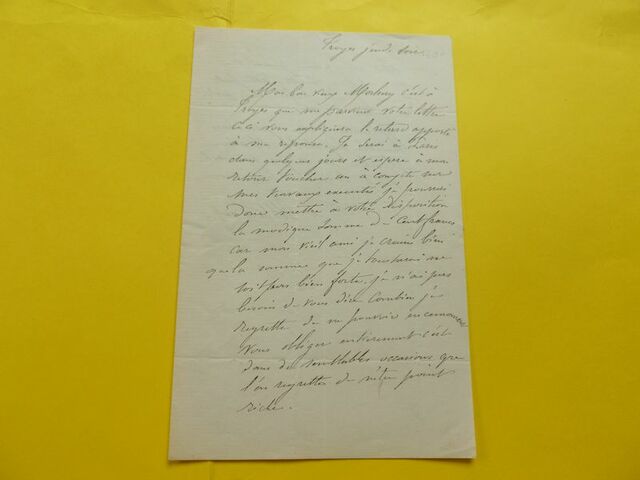 Troyes jeudi soir
Mon bon vieux c'est à
Troyes que me parvient votre lettre
Ceci vous expliquera le retard apporté
à ma réponse. Je serai à Paris
dans quelques jours et espère à mon
retour toucher un à compte sur
mes travaux executés je pourrai
donc mettre à votre disposition
la modique somme de cent francs
car mon vieil ami je crains bien
que la somme que je toucherai ne
soit pas bien forte, je n'ai pas
besoin de vous dire combien je
regrette de ne pouvoir en ce moment
vous obliger entierement c'est
dans de semblables occasions que
l'on regrette de n'être point
riche.